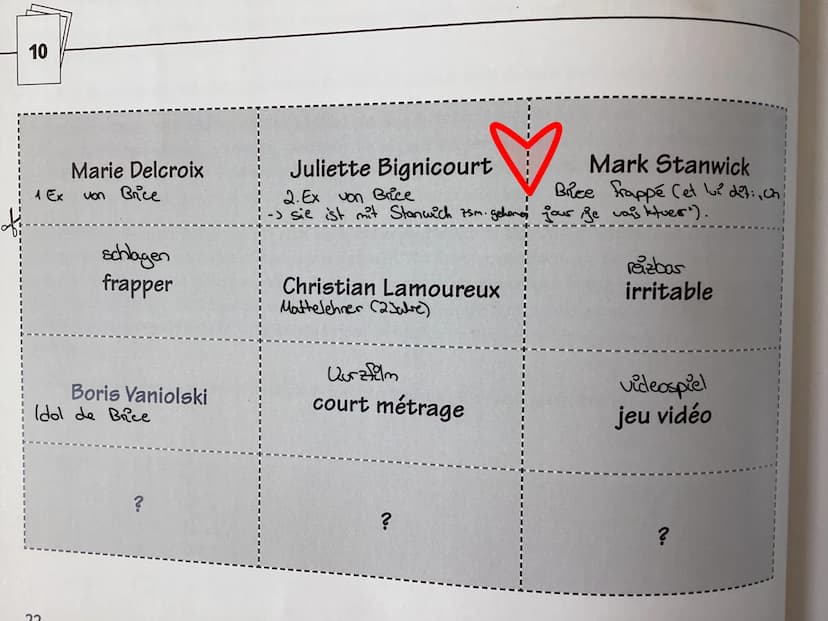 10
Marie Delcroix
1 Ex von Brice
Juliette Bignicourt
2. Ex von Brice
-> sie ist mit Stanwich zsm. gehen
Mark Stanwick
Brice frappé (et lui dit:
jour je vais tuer").
schlagen
frapper
Christian Lamoureux
Mathelehrer (2 Jahre)
reizbar
irritable
Boris Vaniolski
Idol de Brice
Kurzfilm
court métrage
videospiel
jeu vidéo
?
?
?